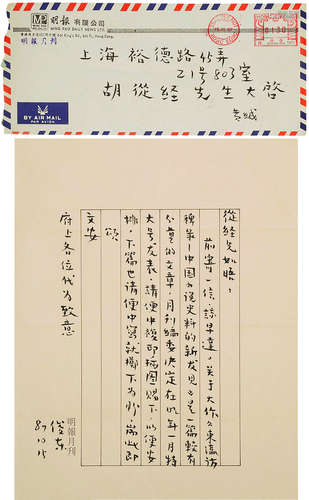 明報有限公司
MING PAO DAILY NEWS LTD.
明報月刊
上海裕德路45弄
21号803室
胡從經先生大啓
黄城
BY AIR MAIL
PAR AVION
從經先如晤：
前寄一信，諒早達，关于大作《東瀛訪
稗录—中国小说史料的新发见》是一篇較有
份量的文章，月刊編委决定在88年一月特
大号发表，請便中複印插图賜下，以便安
排。下篇也請便中寫就擲下为盼，耑此即
頌
文安
府上各位代为致意
俊东
87.10.15
明報月刊